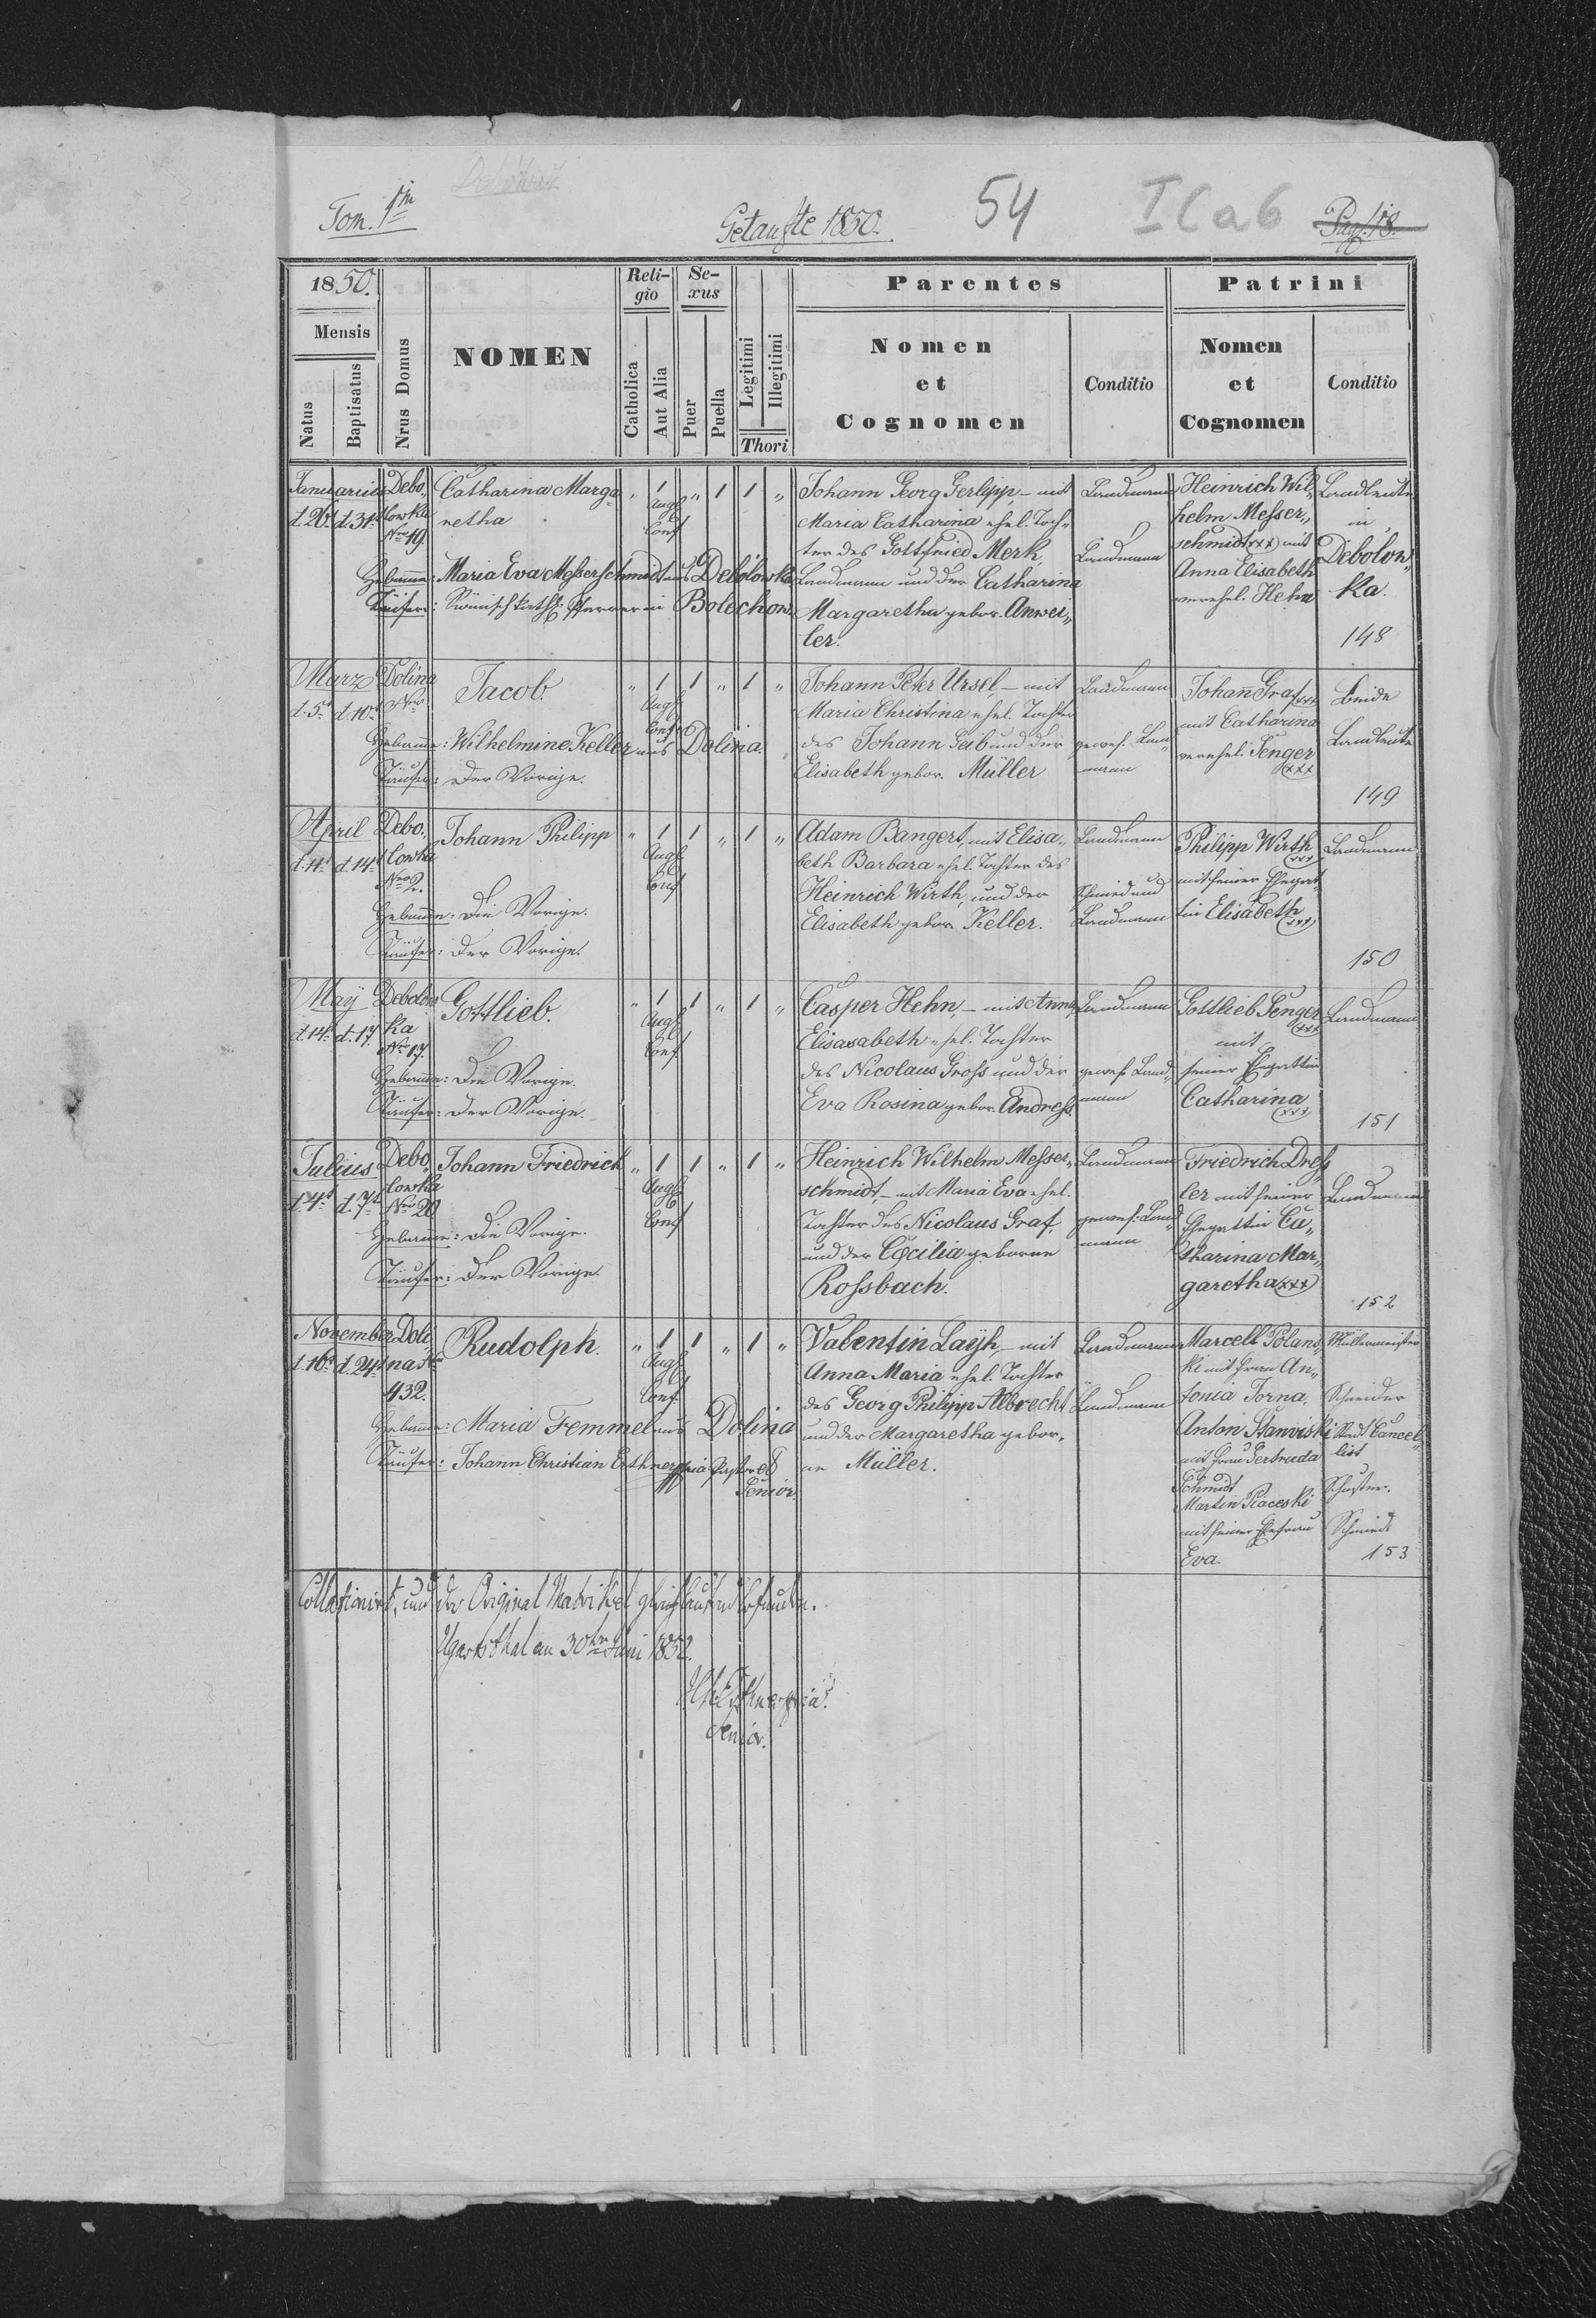 Tom. 1m
Getaufte 1850.
54
I C a 6
Pag. 18.
1850.
Mensis
Natus
Baptisatus
Nrus Domus
NOMEN
Religio
Catholica
Aut Alia
Sexus
Puer
Puella
Legitimi
Illegitimi
Thori
Parentes
Nomen
et
Cognomen
Conditio
Patrini
Nomen
et
Cognomen
Conditio
Januarius
d. 26t d. 31t
Debo„
lowka
Nro 19
Catharina Marga
retha
„ 1 „ 1 1 „
Augs
Conf
Hebamme: Maria Eva Messerschmidt aus Debolowka
Täufer: Römisch kath: Pfarrer in Bolechow
Johann Georg Gerlipp, – mit
Maria Catharina ehel. Toch„
ter des Gottfried Merk,
Landmann und der Catharina
Margaretha gebor. Anwei„
ler.
Landmann
Landmann
Heinrich Wil„
helm Messer„
schmidt xxx) mit
Anna Elisabeth
verehel. Hehn
Landleute
in
Debolon„
ka.
148
Marz
d. 5t d. 10t
Dolina
Nro
Jacob
„ 1 1 „ 1 „
Augs
Conf
Hebamme: Wilhelmine Keller aus Dolina.
Täufer: Der Vorige.
Johann Peter Ursel, – mit
Maria Christina ehel. Tochter
des Johann Geib und der
Elisabeth gebor. Müller
Landmann
gewes. Land„
mann
Johan̄ Graf xxx
mit Catharina
verehel. Jenger
xxx
beide
Landleute
149
April
d. 11t d. 14t
Debo„
lowka
Nro 2.
Johann Philipp
„ 1 1 „ 1 „
Augs
Conf
Hebamme: Die Vorige.
Täufer: Der Vorige.
Adam Bangert, mit Elisa„
beth Barbara ehel. Tochter des
Heinrich Wirth, und der
Elisabeth gebor. Keller.
Landmann
Schmied und
Landmann
Philipp Wirth
xxx
mit seiner Ehegat
tin Elisabeth
xxx)
Landmann
150
Maÿ
d. 14t d. 17.
Debolow
ka
Nro 17.
Gottlieb.
„ 1 1 „ 1 „
Augs
Conf
Hebamme: Die Vorige.
Täufer: Der Vorige.
Casper Hehn, – mit Anna
Elisasabeth ehel. Tochter
des Nicolaus Gross und der
Eva Rosina gebor. Andress
Landmann
gewes. Land„
mann
Gottlieb Jenger
xxx
mit
seiner Ehegattin
Catharina
xxx)
Landmann
151
Julius
d. 4t d. 7t
Debo„
lowka
Nro 20
Johann Friedrich
„ 1 1 „ 1 „
Augs
Conf
Hebamme: Die Vorige.
Täufer: Der Vorige.
Heinrich Wilhelm Messer„
schmidt, – mit Maria Eva ehel.
Tochter des Nicolaus Graf,
und der Cæcilia geborne
Rossbach.
Landmann
gewes: Land„
mann
Friedrich Dress
ler mit seiner
Ehegattin Ca„
tharina Mar„
garetha xxx)
Landmann
152
November
d. 16t d. 24t
Doli„
na Nr
432.
Rudolph.
„ 1 1 „ 1 „
Augs
Conf.
Hebamme: Maria Femmel aus Dolina
Täufer: Johann Christian Erthner mpria Pastor et
Senior.
Valentin Laÿh, – mit
Anna Maria ehel. Tochter
des Georg Philipp Albrecht
und der Margaretha gebor„
ne Müller.
Landmann
Landmann
Marcell Polans„
ki mit Frau An„
tonia Torna,
Anton Stanviski
mit Frau Gertruda
Schmidt
Martin Piaceski
mit seiner Ehefrau
Eva.
Müllermeister
Schneider
Stadt Cancel„
list
Schuster.
Schmied
153
Collationirt, und der Original Matrikel gleichlautend befunden.
Ugartsthal am 30ten Juni 1852.
Senior.